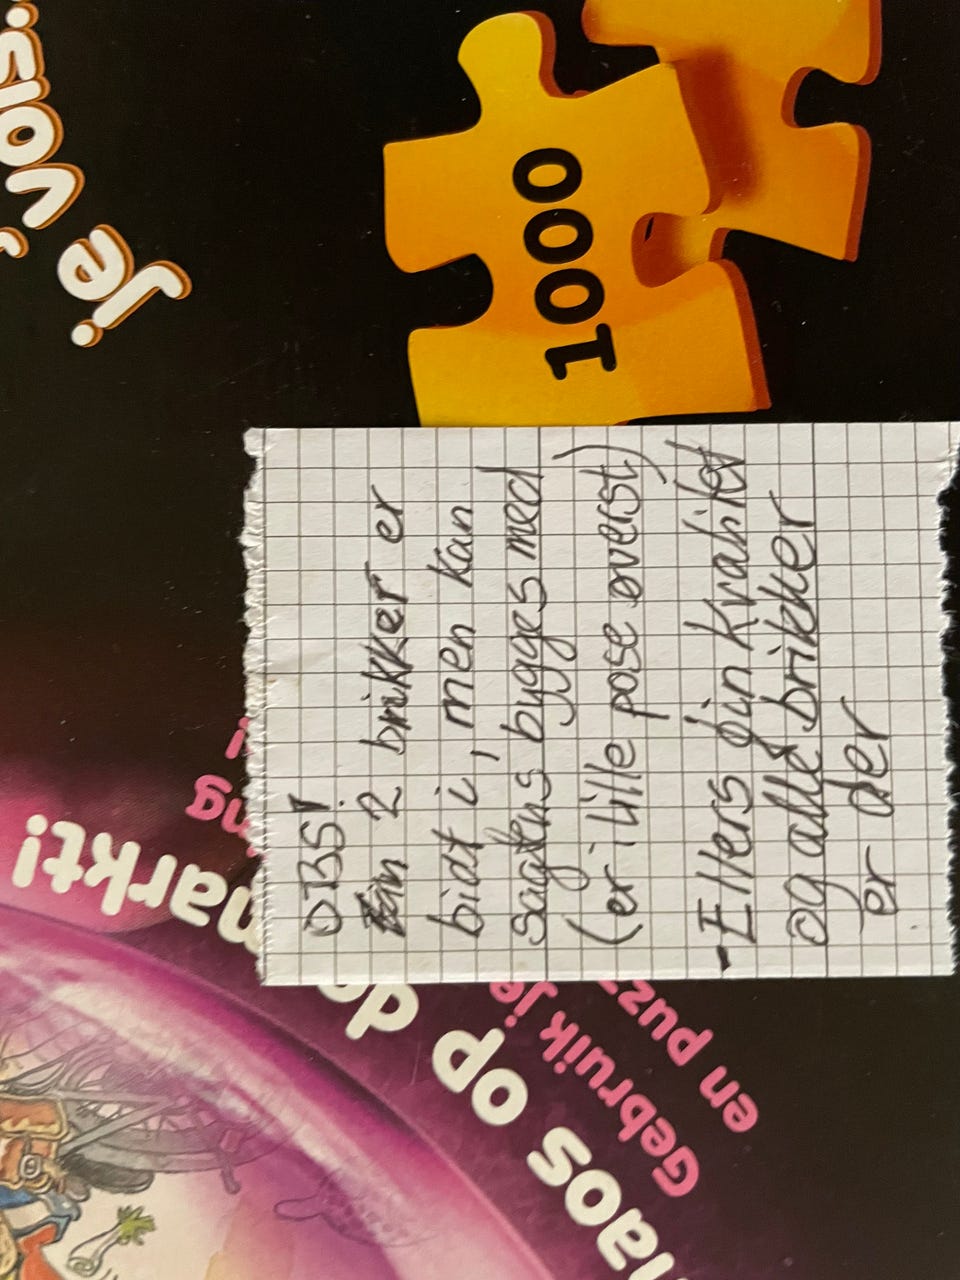 OBS!
2 brikker er
bidt i, men kan
sagtens bygges med
(er i lille pose øverst)
-Ellers fin kvalitet
og alle brikker
er der
1000
je
op de markt!
Gebruik je
en puzz